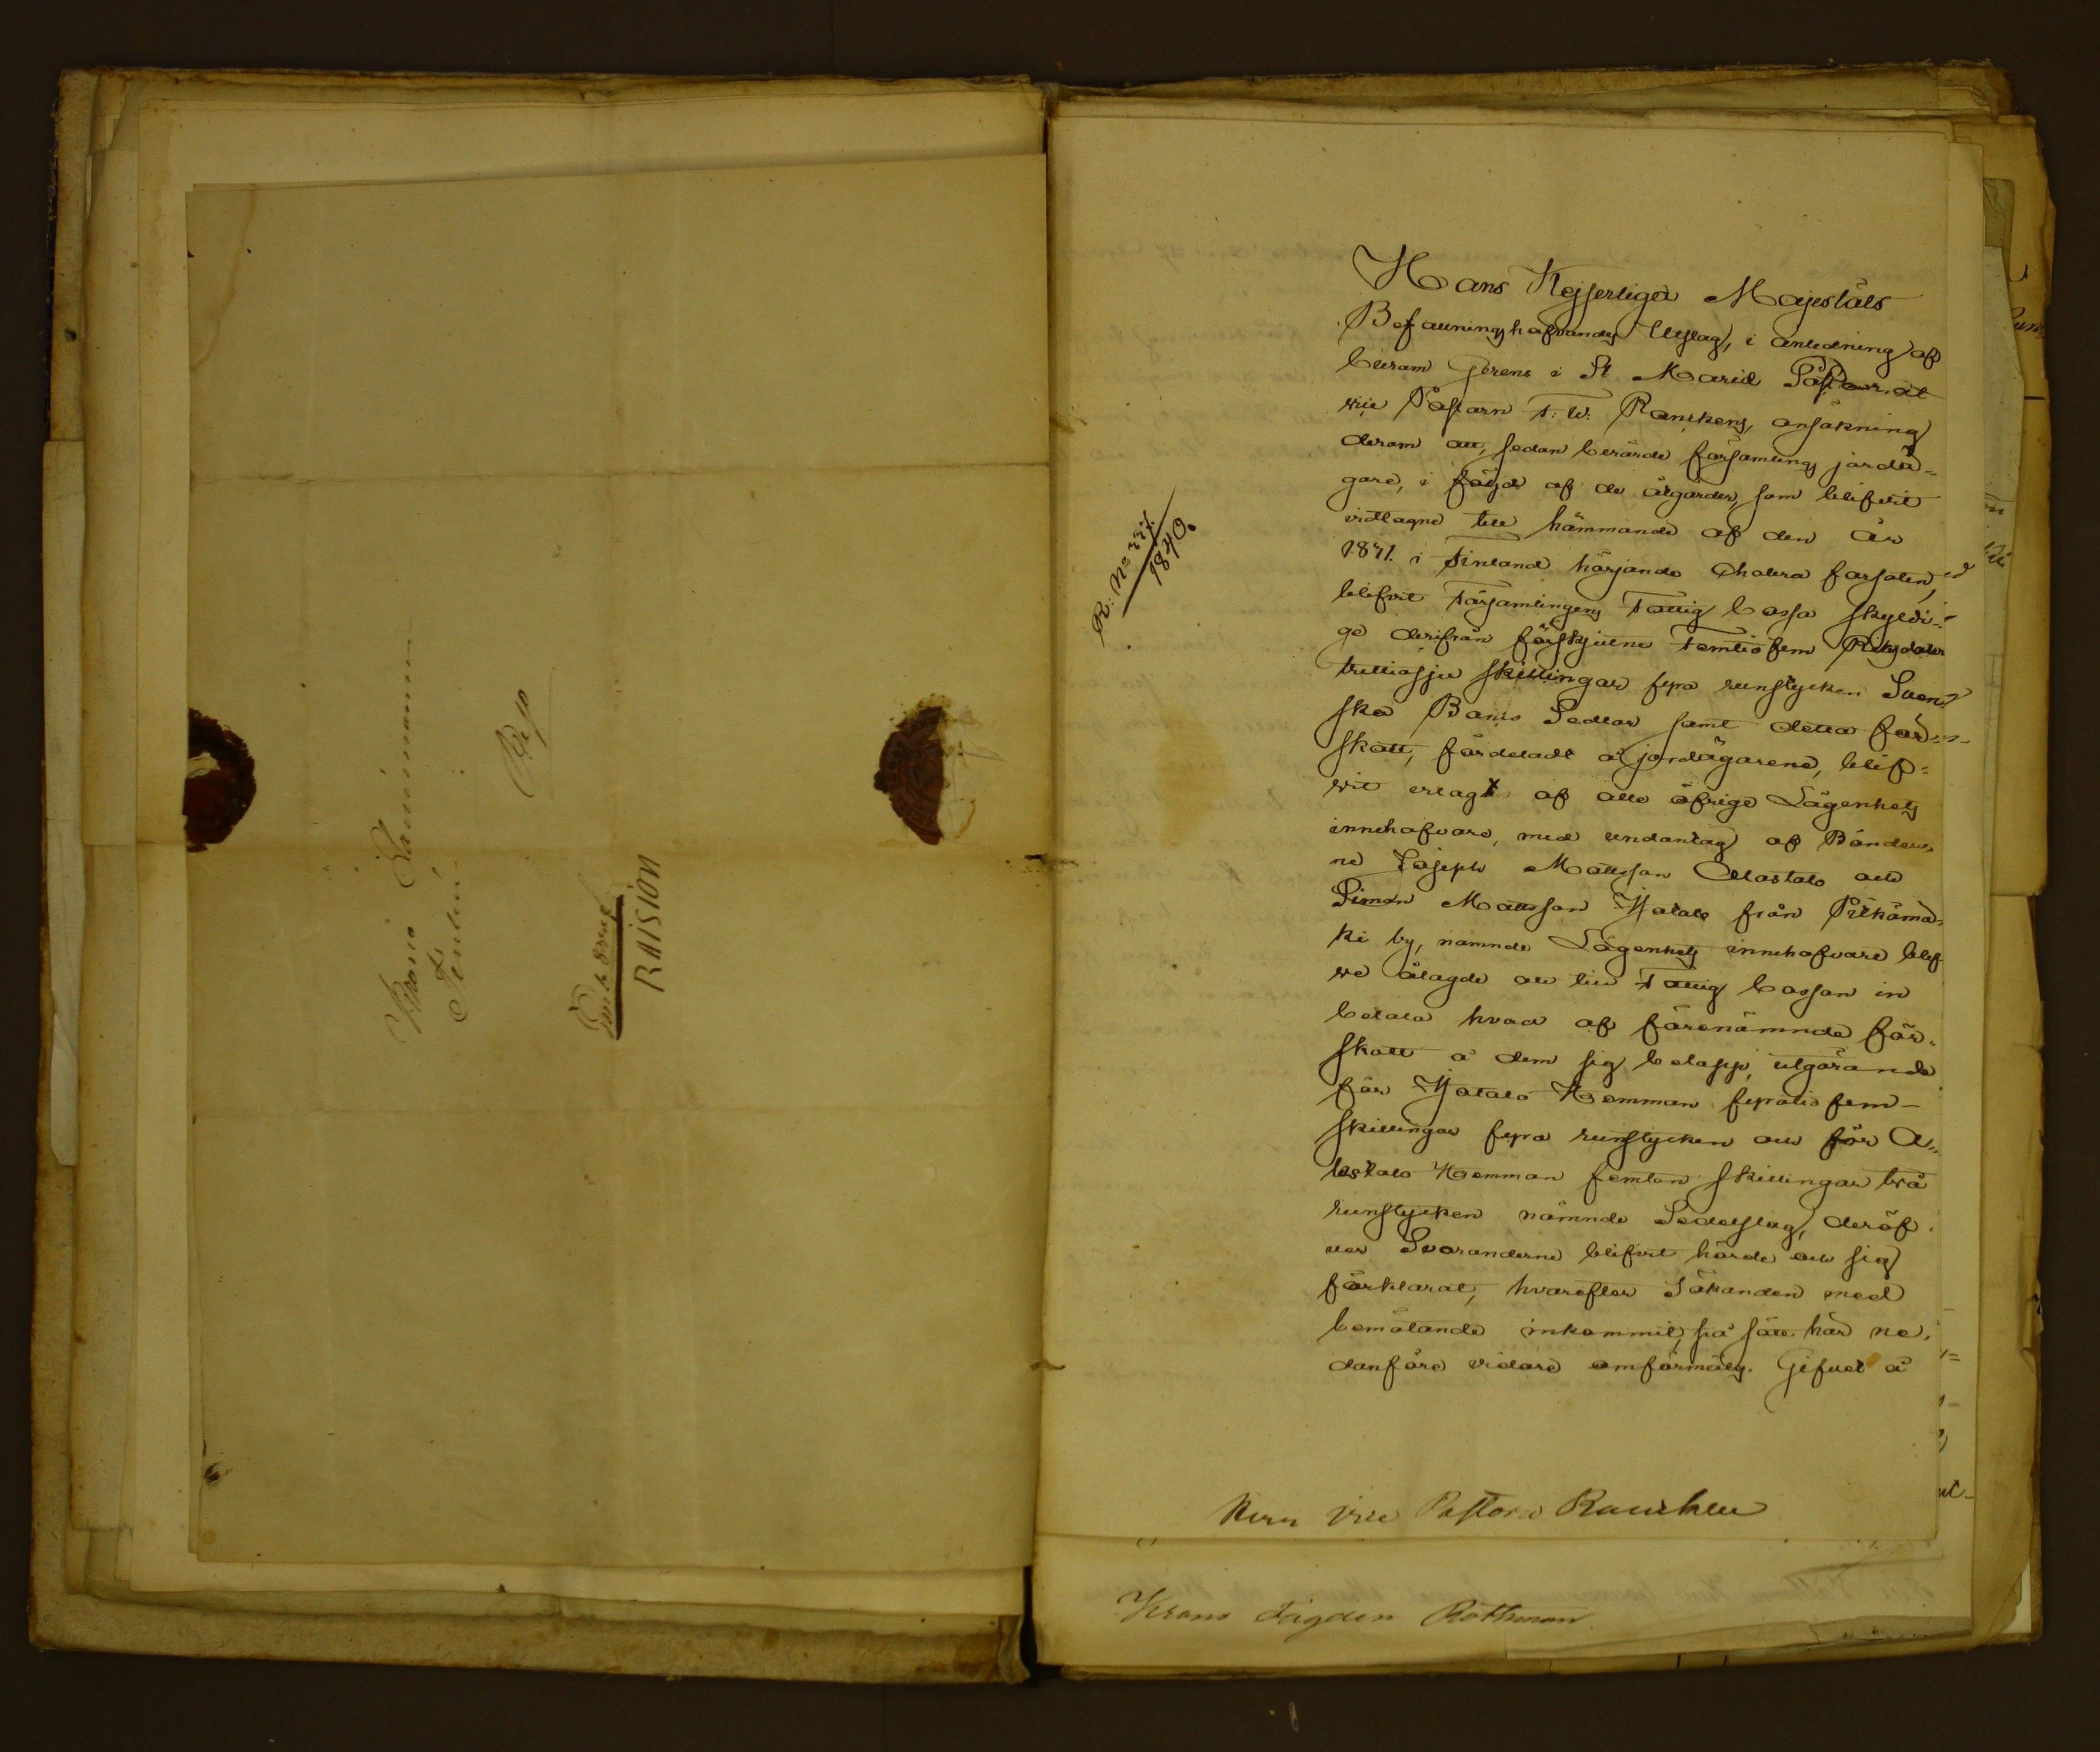 Krono Länsmannen
Reso
Embets ärende
RAISION
R: No
1840.
Hans Kejserliga Majestäts
Befallningshafvandes Utslag, i anledning af
Curam Gerens i St Mariæ Pastorat
vice Pastorn F: W: Ranckens, ansökning
derom att, sedan berörde församlings jordä-
gare, i följd af de åtgärder, som blifvit
vidtagne till hämmande af den år
1831. i Finland härjande Cholera farsoten,
blifvit Församlingens Fattig Cassa skyldi-
ge derifrån förskjutne Femtiofem Riksdaler
trettiosju skillingar fyra runstycken Sven-
ska Banco Sedlar samt detta för-
skott, fördeladt å jordägarene, blif-
vit erlagt af alla öfrige Lägenhets
innehafvare, med undantag af Bönder-
ne Joseph Mattsson Alastalo och
Simon Mattsson Ylatalo från Pitkämä-
ki by, nämnde Lägenhets innehafvare blef-
ve ålagde att till Fattig Cassan in
betala hvad af förenämnde för-
skott å dem sig belöpp, utgörande
för Ylatalo Hemman fyratio fem
skillingar fyra runstycken och för A-
lastalo Hemman femton skillingar två
runstycken nämnde Sedelslag, deröf-
ver Svaranderne blifvit hörde och sig
förklarat, hvarefter Sökanden med
bemötande inkommit, på sätt här ne-
danföre vidare omförmäles. Gifvet å
Herr Vice Pastorn Rancken
Krono Fogden Rothman